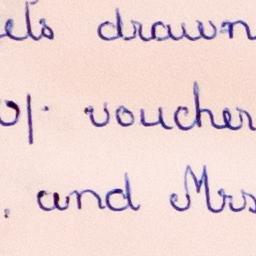 drawn
voucher
and Mrs